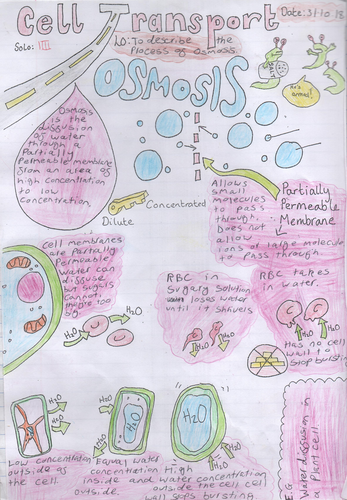 Cell Transport
Date: 3/10 18
Solo: IIII
LO: To describe the
Process of Osmosis.
OSMOSIS
He's
armed!
Osmosis
is the
diffusion
of water
through a
Partially
Permeable membrane
from an area of
high concentration
to low
concentration.
Dilute
Concentrated
Allows
small
molecules
to pass
through.
Does not
allow
of large molecule
to Pass through
Partially
Permeable
Membrane
Cell membranes
are Partially
Permeable
water can
diffuse
but sugars
cannot
too
big
H₂O
H₂O
RBC in
Sugary solution
loses water
until it shrivels
H₂O
H₂O
RBC takes
in water.
H₂O
H₂O
Has no cell
wall to
stop bursting
H₂O
H₂O
H₂O
H₂O
H₂O
H₂O
H₂O
Low concentration
outside of
the cell
Equal water
concentration
inside and
outside.
High
water concentration
outside the cell cell
wall stops bursting
Water diffusion in
Plant cell